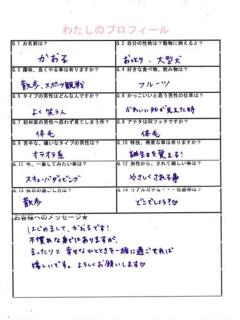 わたしのプロフィール
Q.1 お名前は?
Q.2 自分の性格は?動物に例えると?
かおる
おっとり、大型犬
Q.3 趣味、良くやる事は有りますか?
Q.4 好きな食べ物、飲み物は?
散歩、スポーツ観戦
フルーツ
Q.5 タイプの男性はどんな人ですか?
Q.6 かっこいいと思う男性の仕草は?
よく笑う人
Q.7 初対面の男性へ思わず見てしまう所?
Q.8 アナタは何フェチですか?
体毛
体毛
Q.9 苦手な、嫌いなタイプの男性は?
Q.10 特技、得意な事は有りますか?
オラオラ系
誕生日を覚える!
Q.11 今、一番してみたい事は?
スキューバダイビング
やさしくされる事
散歩
どこでしょう?♡
お客様へのメッセージ★
はじめまして、かおるです!
不慣れな身ではありますが、
まったりと幸せなひとときを一緒に過ごせれば
嬉しいです。よろしくお願いします♡